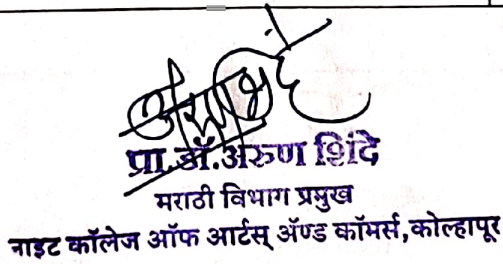 प्रा.डॉ.अरुण शिंदे
मराठी विभाग प्रमुख
नाइट कॉलेज ऑफ आर्टस् ॲण्ड कॉमर्स,कोल्हापूर